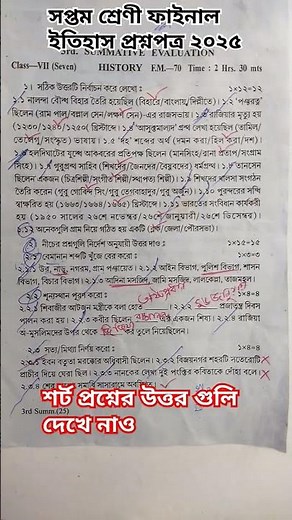 সপ্তম শ্রেণী ফাইনাল
ইতিহাস প্রশ্নপত্র ২০২৫
3rd. SUMMATIVE EVALUATION
Class–VII (Seven) HISTORY F.M.–70 Time : 2 Hrs. 30 mts
১। সঠিক উত্তরটি নির্বাচন করে লেখো : ১×১২=১২
১.১ নালন্দা বৌদ্ধ বিহার তৈরি হয়েছিল (বিহারে/বাংলায়/দিল্লীতে)। ১.২ 'পঞ্চরত্ন'
ছিলেন (রাম পাল/বল্লাল সেন/লক্ষণ সেন)-এর রাজসভায়। ১.৩ রাজিয়ার মৃত্যু হয়
(১২৩০/১২৪০/১২৫০) খ্রিস্টাব্দে। ১.৪ গ্রন্থ লেখা হয়েছিল (তামিল/
তেলেগু/সংস্কৃত) ভাষায়। ১.৫ শব্দের অর্থ (দমন করা/ছিল করা/দশ)।
১.৬ হলদিঘাটের যুদ্ধে আকবরের প্রতিপক্ষ ছিলেন (মানসিংহ/রানা প্রতাপ/সংগ্রাম
সিংহ)। ১.৭ গুরুগ্রন্থ সাহিব (শিখদের/জৈনদের/বৈষ্ণবদের) ধর্মগ্রন্থ। ১.৮ তানসেন
ছিলেন একজন (চিত্রশিল্পী/সংগীত শিল্পী/স্থাপত্য শিল্পী)। ১.৯ শিখদের খালসা সংগঠন
তৈরি করেন (গুরু গোবিন্দ সিং/গুরু তেগবাহাদুর/গুরু অর্জুন)। ১.১০ পুরন্দরের সন্ধি
স্বাক্ষরিত হয় (১৬৬৩/১৬৬৪/১৬৬৫) খ্রিস্টাব্দে। ১.১১ ভারতের সংবিধান কার্যকরী
হয় (১৯৫০ সালের ২৬শে নভেম্বর/২৬শে জানুয়ারী/২৬শে ডিসেম্বর)।
১.১২ অনেকগুলি গ্রাম নিয়ে গঠিত হয় একটি (ব্লক/জেলা/পৌরসভা)।
২। নীচের প্রশ্নগুলি নির্দেশ অনুযায়ী উত্তর দাও : ১×১৫=১৫
২.১ বেমানান শব্দটি খুঁজে বের করো : ১×৩=৩
২.১.১ উর, নাড়ু, নগরম, গ্রাম পঞ্চায়েত। ২.১.২ আইন বিভাগ, পুলিশ বিভাগ, শাসন
বিভাগ, বিচার বিভাগ। ২.১.৩ আদিনা মসজিদ, জামি মসজিদ, লালকেল্লা, কোয়াতুল মসজিদ।
২.২ শূন্যস্থান পূরণ করো : ১×৪=৪
২.২.১ শিবাজীর আটজন মন্ত্রীকে বলা হতো। ২.২.২ প্রজাতন্ত্র দিবস
পালন করা হয়। ২.২.৩ কবীর ছিলেন একজন শিষ্য। ২.২.৪ রাজিয়া
অ-মুসলিমদের উপর থেকে কর তুলে নিয়েছিলেন।
২.৩ সত্য/মিথ্যা নির্ণয় করো : ১×৪=৪
২.৩.১ ইবন বতুতা মরক্কোর অধিবাসী ছিলেন। ২.৩.২ বিজয়নগর শহরটি সতেরোটি
প্রাচীর দিয়ে ঘেরা ছিল। ২.৩.৩ নানকের লেখা দুই পংক্তির কবিতাকে দোঁহা বলে।
২.৩.৪ সমাধি সাসারামে অবস্থিত।
3rd Summ.(25)
শর্ট প্রশ্নের উত্তর গুলি
দেখে নাও